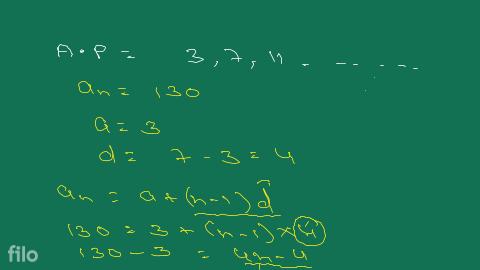 A.P = 3, 7, 11 . -- -- - --
an = 130
a = 3
d = 7 - 3 = 4
an = a + (n-1) d
130 = 3 + (n-1) × 4
130 - 3 = 4n - 4
filo